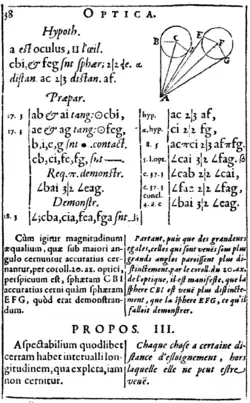 38 OPTICA.
Hypoth.
a est oculus, II l'œil.
cbi, & feg snt sphær; 2|2 æ. a
distan. ac 2|3 distan. af.
Præpar.
17. 3 ab & ai tang: ⊙cbi,
17. 3 ae & ag tang: ⊙feg,
b,i,e,g snt • contact.
cb,ci,fe,fg, snt —.
Req. π. demonstr.
∠bai 3|2 ∠eag.
Demonstr.
18. 3 ∠;cba,cia,fea,fga snt
hyp. ac 2|3 af,
a. hyp. ci 2|2 fg,
∠cai 3|2 ∠fag.
∠eab 2|2 ∠cai,
∠fae 2|2 ∠fag,
concl. ∠bai 3|2 ∠eag.
B C I E F G A
Cùm igitur magnitudinum
æqualium, quæ sub maiori an-
gulo cernuntur accuratius cer-
nantur, per coroll. 20. ax. optici,
perspicuum est, sphæram CBI
accuratius cerni quàm sphæram
EFG, quòd erat demonstran-
dum.
Partant, puis que des grandeurs
egales, celles qui sont veuës sous plus
grands angles paroissent plus di-
stinctement, par le coroll. du 20. ax.
de l'optique, il est manifeste, que la
sphere CBI est veuë plus distincte-
ment, que la sphere EFG, ce qu'il
falloit demonstrer.
PROPOS. III.
Aspectabilium quodlibet
certam habet interualli lon-
gitudinem, qua expleta, iam
non cernitur.
Chaque chose a certaine di-
stance d'esloignement, hors
laquelle elle ne peut estre
veuë.